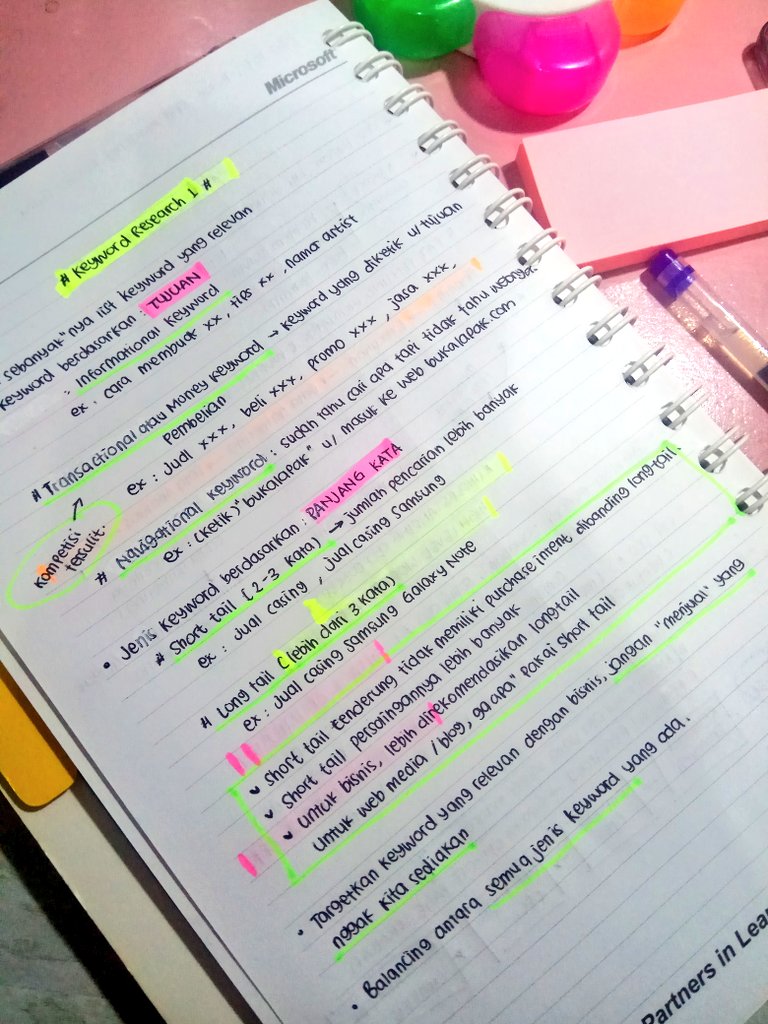 Microsoft
# Keyword Research 1 #
sebanyak"nya list keyword yang relevan
Keyword berdasarkan : TUJUAN
: Informational Keyword
ex : cara membuat xx, tips xx, nama artist
# Transactional atau Money Keyword → keyword yang diketik u/ tujuan
pembelian
ex : Jual xxx, beli xxx, promo xxx, jasa xxx,
Kompetisi
tersulit.
# Navigational Keyword : sudah tahu cari apa tapi tidak tahu webnya.
ex : (ketik) "bukalapak" u/ masuk ke web bukalapak.com
• Jenis Keyword berdasarkan : PANJANG KATA
# Short tail (2-3 kata) → jumlah pencarian lebih banyak
ex : Jual casing, jual casing samsung
# Long tail (lebih dari 3 kata)
ex : Jual casing samsung Galaxy Note
✓ Short tail cenderung tidak memiliki purchase intent dibanding long-tail.
✓ Short tail persaingannya lebih banyak
✓ Untuk bisnis, lebih direkomendasikan longtail
Untuk web media / blog, ga apa" pakai short tail
• Targetkan keyword yang relevan dengan bisnis, jangan "menjual" yang
nggak kita sediakan
• Balancing antara semua jenis keyword yang ada.
Partners in Lear